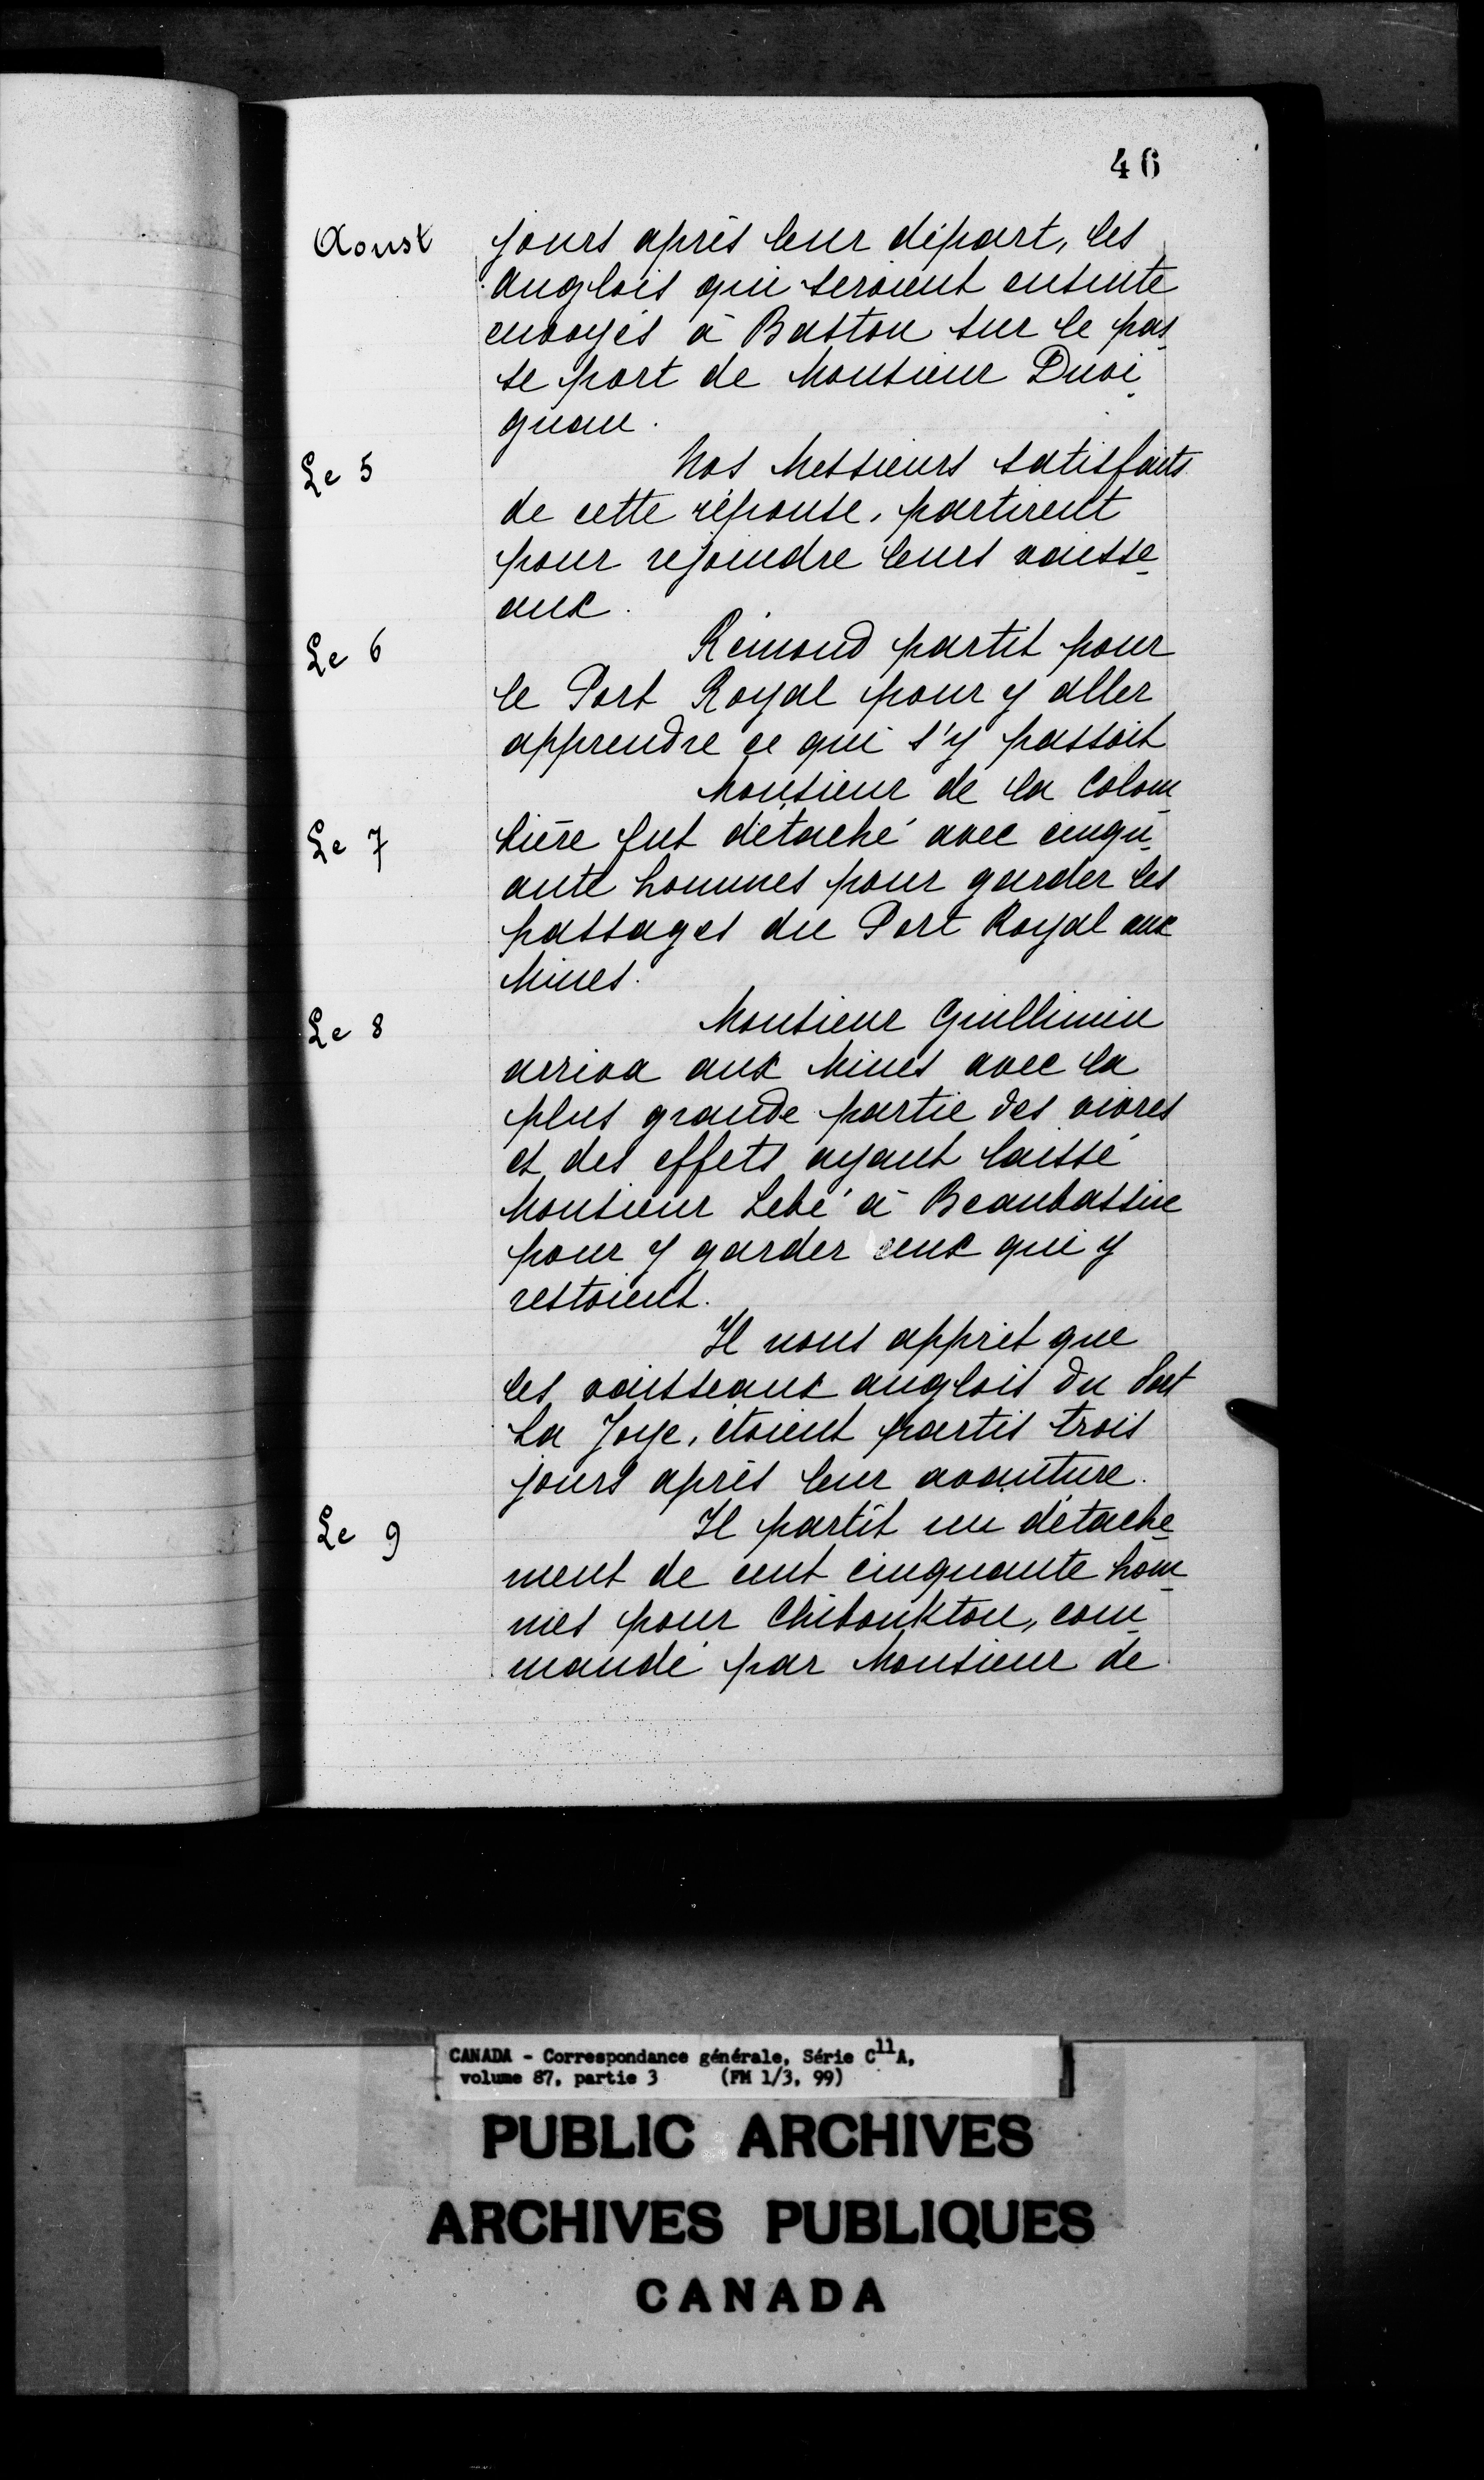 46
Aoust jours après leur départ, les
anglois qui seroient ensuite
envoyés à Baston sur le pas
se port de Monsieur Duvi
gnau.
Le 5 Nos Messieurs satisfaits
de cette réponse, partirent
pour rejoindre leurs vaisse
aux.
Le 6 Rémond partit pour
le Port Royal pour y aller
apprendre ce qui s'y passoit
Monsieur de la Colom
Le 7 bière fut détaché avec cinqu
ante hommes pour garder les
passages du Port Royal aux
Mines.
Le 8 Monsieur Guillimin
arriva aux Mines avec la
plus grande partie des vivres
et des effets ayant laissé
Monsieur Lebé à Beaubassin
pour y garder ceux qui y
restoient.
Il nous apprit que
les vaisseaux anglois du Port
La Joye, étoient partis trois
jours après leur avanture.
Le 9 Il partît un détache
ment de cent cinquante hom
mes pour Chiboukton, com
mandé par Monsieur de
CANADA - Correspondance générale, Série C11A,
volume 87, partie 3 (FM 1/3, 99)
PUBLIC ARCHIVES
ARCHIVES PUBLIQUES
CANADA